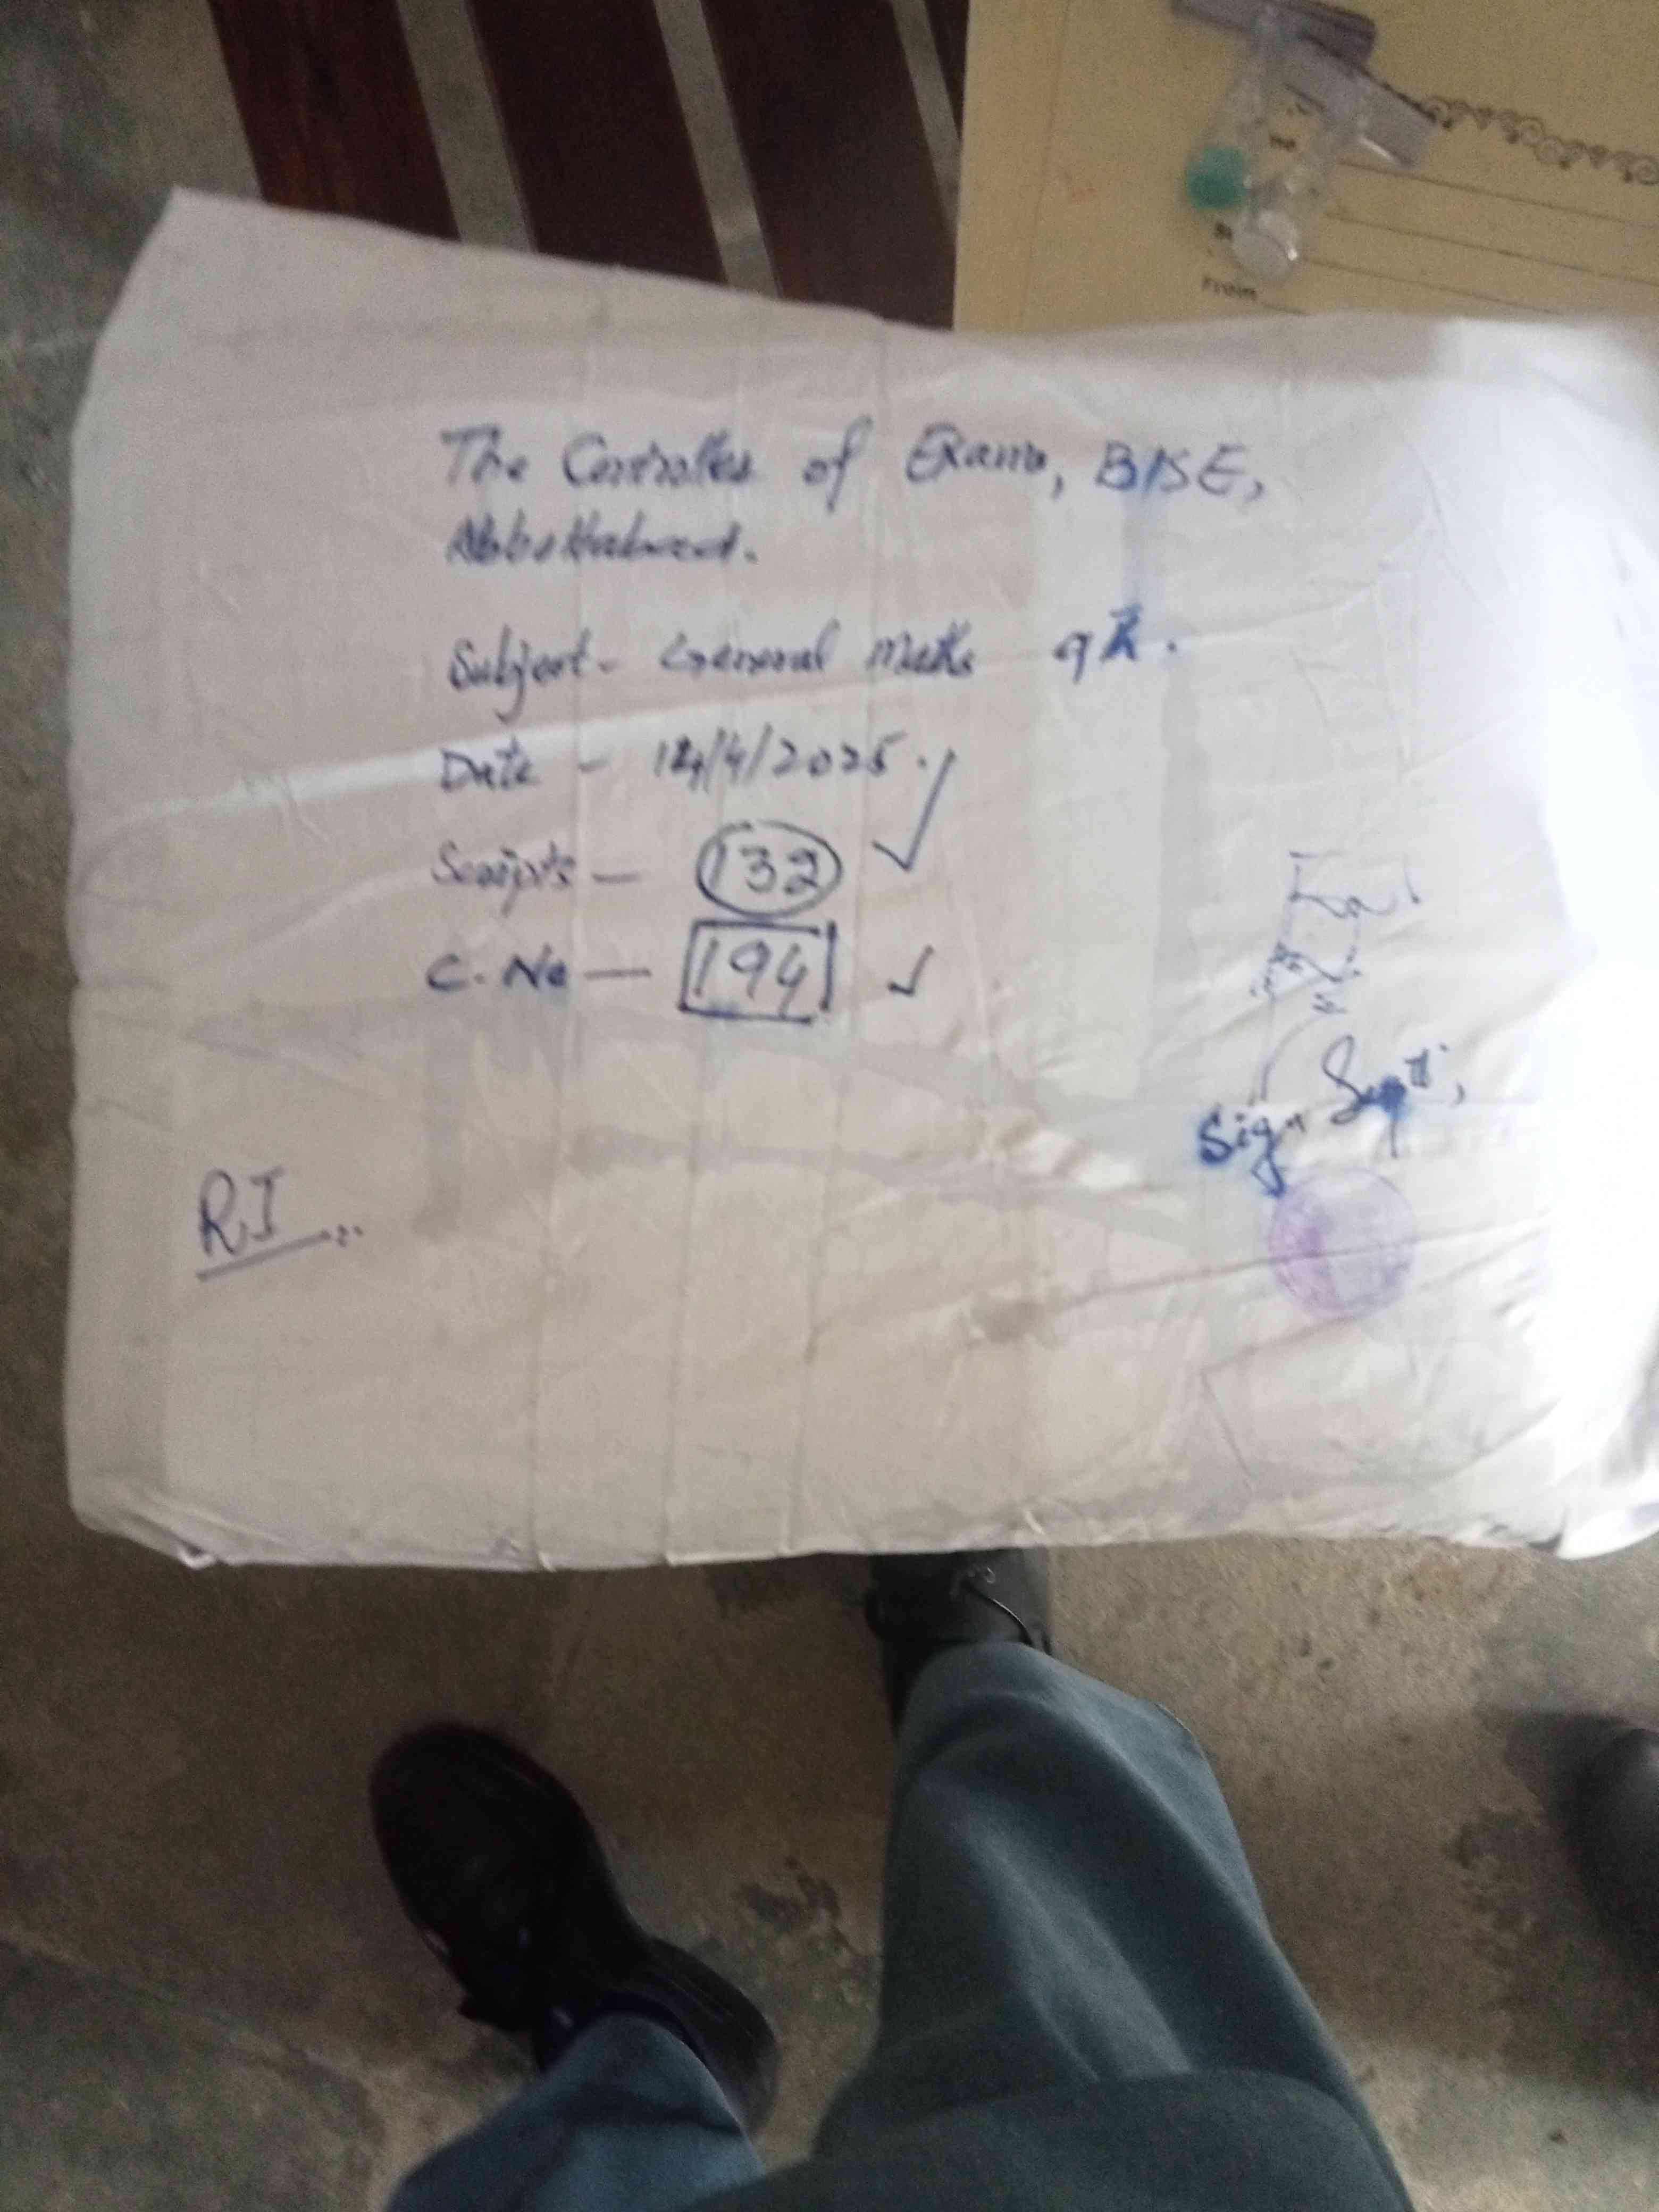 The Controller of Exams, BISE,
Abbottabad.
Subject - General Maths 9th.
Date - 14/4/2025.
Scripts — 132
C. No — 194
Sign Suptt,
R.I
From